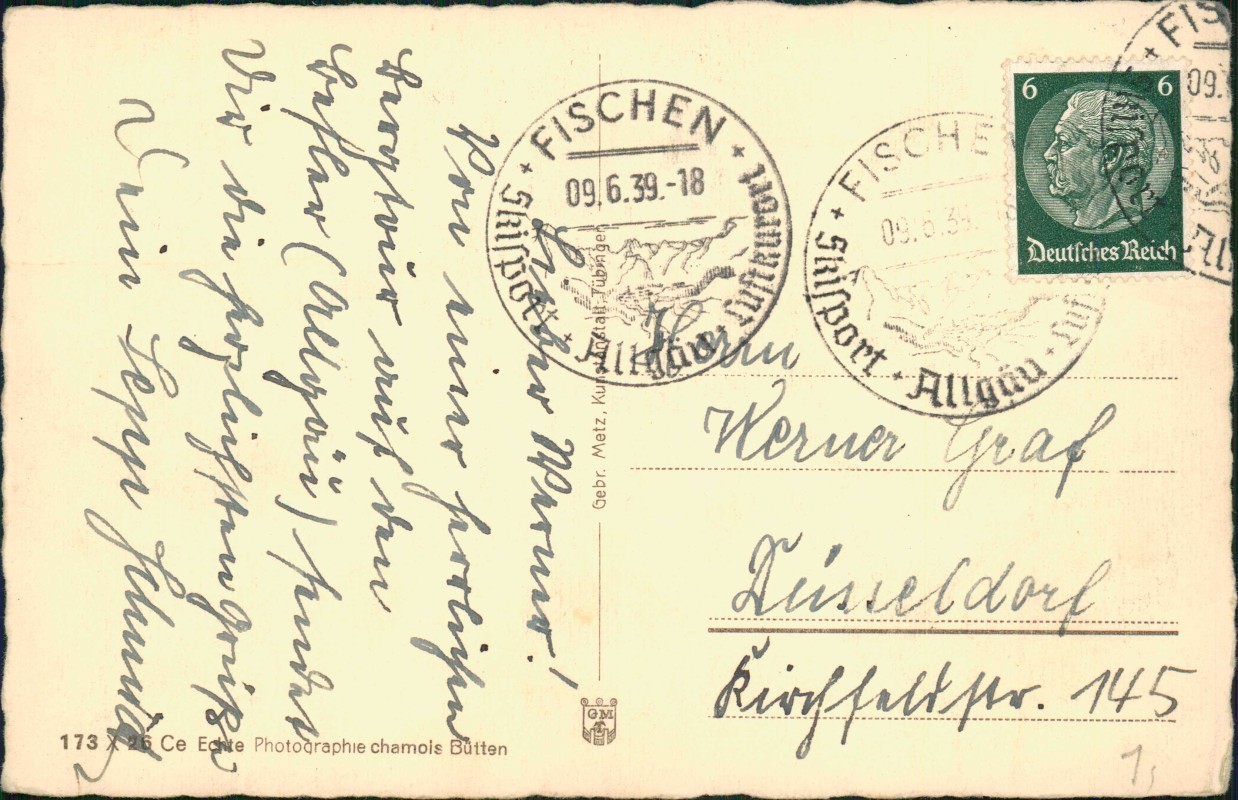 Lieber Werner!
Von einer herrlichen
Bergtour auf den
Besler (Allgäu) sendet
Dir die herzlichsten Grüße
Dein Sepp
FISCHEN
09.6.39.-18
Skisport · Allgäu · Luftkurort
FISCHEN
09.6.39.-18
Skisport · Allgäu · Luft
FIS
09.
6 6
Deutsches Reich
Herrn
Werner Graf
Düsseldorf
Kirchfeldstr. 145
Gebr. Metz, Kunstanstalt, Tübingen
GM
T
173 X 26 Ce Echte Photographie chamois Bütten